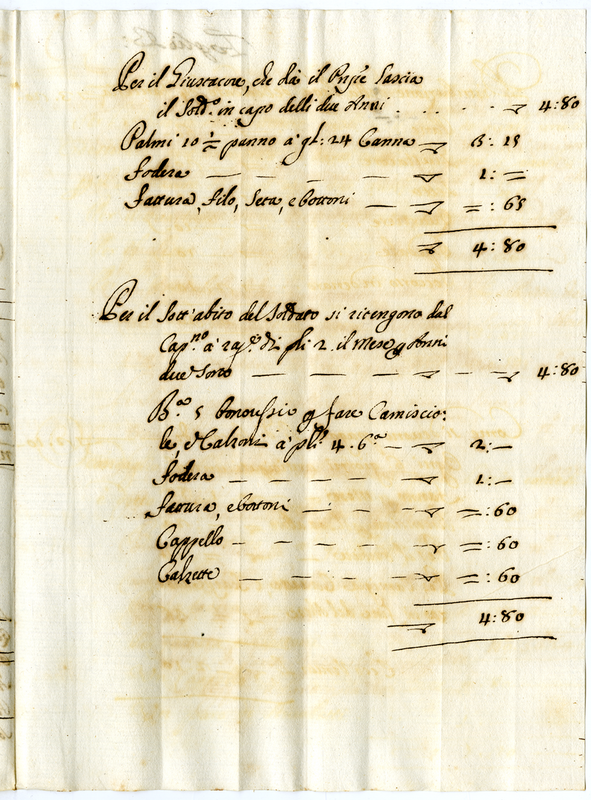 Per il Giustacore, che dà il Pnȷ̃e lascia
il Sold.º in capo delli due Anni . . . . . 4:80
Palmi 10 ½ panno à gl: 24 Canna — 3: 15
fodera — — — — 1: =
fattura, filo, Seta, e bottoni — =: 65
4: 80
Per il Sott'abito del Soldato si ritengono dal
Cap.no à rag.e di pli 2. il mese p Anni
due Sono — — — — — — 4:80
B.a 5 p fare Camiscio:
le, e Calzoni à pli 4. 6.a — — 2: —
fodera — — — — 1: —
fattura, e bottoni — — — =: 60
Cappello — — — — — =: 60
Calzette — — — — — =: 60
4:80